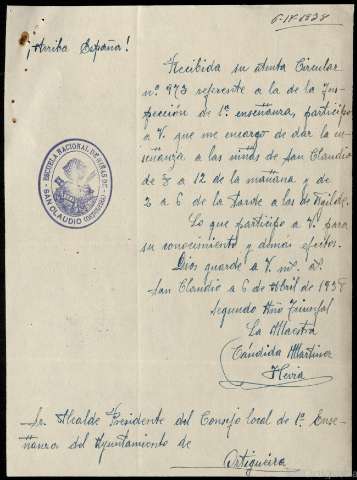 6-IV-1938
¡Arriba España!
Recibida su atenta Circular
nº 973 referente a la de la Ins-
pección de 1ª enseñanza, participo
a V. que me encargo de dar la en-
señanza a las niñas de San Claudio
de 8 a 12 de la mañana y de
2 a 6 de la tarde a las de
Lo que participo a V. para
su conocimiento y demás efectos.
Dios guarde a V. m. a.
San Claudio a 6 de Abril de 1938
Segundo Año Triunfal
La Maestra
Cándida Martínez
Hevia
ESCUELA NACIONAL DE NIÑAS DE
SAN CLAUDIO
Sr. Alcalde Presidente del Consejo local de 1ª Ense-
ñanza del Ayuntamiento de
Ortigueira